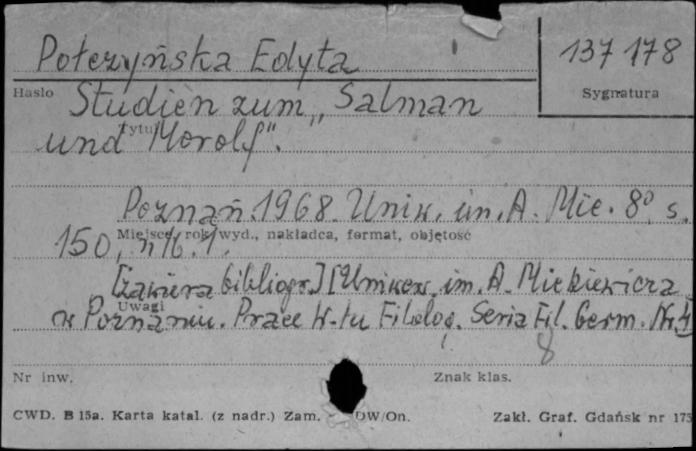 Połczyńska Edyta
137 178
Hasło
Sygnatura
Studien zum „Salman
Tytuł
und Morolf".
Poznań 1968. Uniw. im. A. Mic. 8° s.
Miejsce, rok wyd., nakładca, format, objętość
150, nlb. 1.
[zawiera bibliogr.] [Uniwer. im. A. Mickiewicza
Uwagi
w Poznaniu. Prace W-łu Filolog. Seria Fil. Germ. Nr. 4]
8
Nr inw.
Znak klas.
CWD. B 15a. Karta katal. (z nadr.) Zam. DW/On.
Zakł. Graf. Gdańsk nr 175